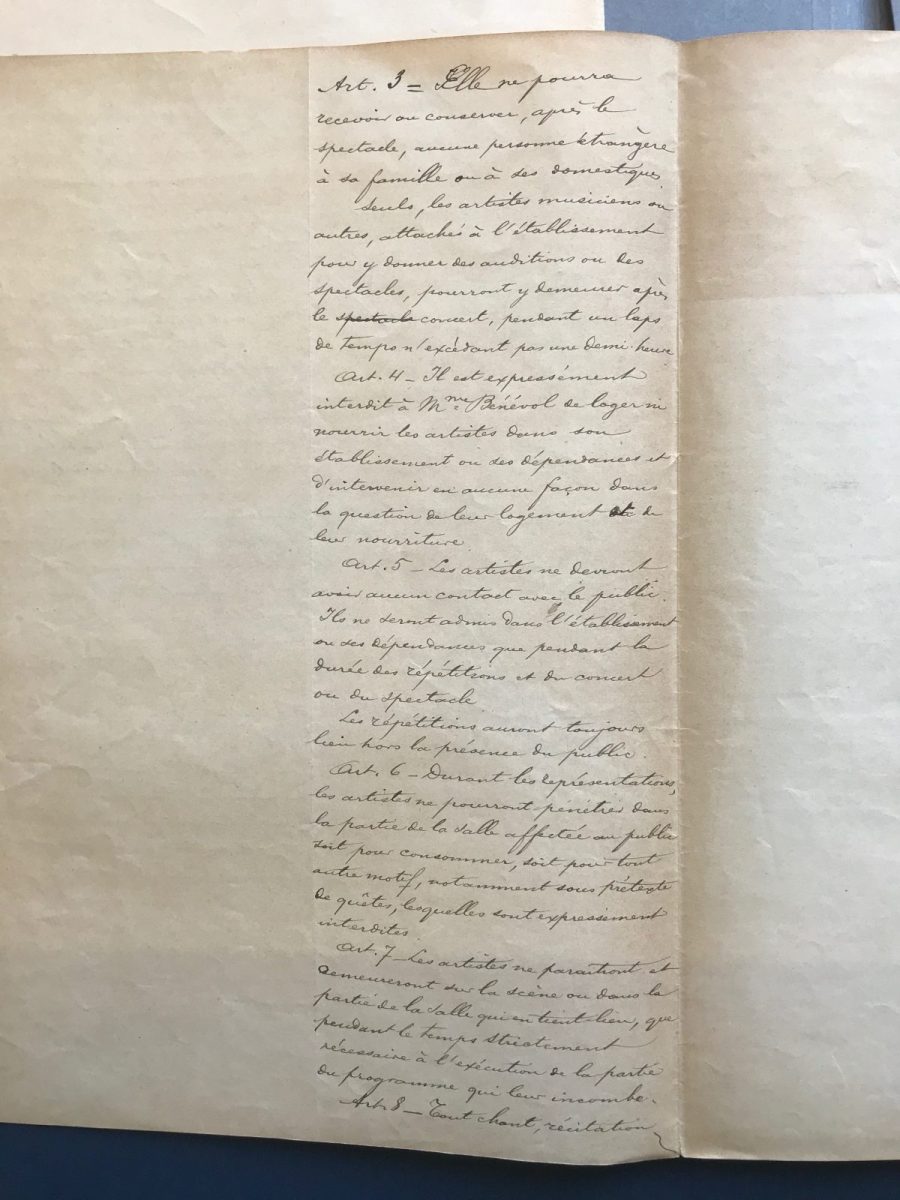 Art. 3 = Elle ne pourra
recevoir ou conserver, après le
spectacle, aucune personne étrangère
à sa famille ou à ses domestiques
seuls, les artistes musiciens ou
autres, attachés à l'établissement
pour y donner des auditions ou des
spectacles, pourront y demeurer après
le spectacle concert, pendant un laps
de temps n'excédant pas une demi-heure
Art. 4 - Il est expressément
interdit à Mme Bénévol de loger ni
nourrir les artistes dans son
établissement ou ses dépendances et
d'intervenir en aucune façon dans
la question de leur logement et de
leur nourriture
Art. 5 - Les artistes ne devront
avoir aucun contact avec le public.
Ils ne seront admis dans l'établissement
ou ses dépendances que pendant la
durée des répétitions et du concert
ou du spectacle
Les répétitions auront toujours
lieu hors la présence du public.
Art. 6 - Durant les représentations,
les artistes ne pourront pénétrer dans
la partie de la salle affectée au public
soit pour consommer, soit pour tout
autre motif, notamment sous prétexte
de quêtes, lesquelles sont expressément
interdites
Art. 7 - Les artistes ne paraîtront et
demeureront sur la scène ou dans la
partie de la salle qui en tient lieu, que
pendant le temps strictement
nécessaire à l'exécution de la partie
du programme qui leur incombe.
Art. 8 - Tout chant, récitation